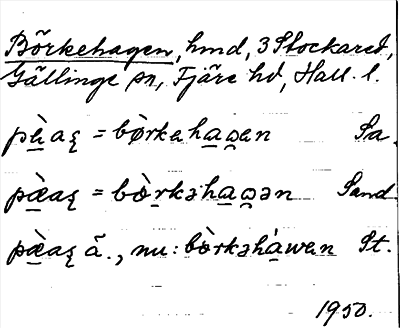 Börkehagen, hmd, 3 Stockared,
Gällinge sn, Fjäre hd, Hall. l.
pæ̀aʂ = børkəha̱ɷen Sa.
pæ̀aʂ = bò̱rkəha̱ɷən Sand.
pæ̀aʂ ä., nu: bòrkəhàwen St.
1950.